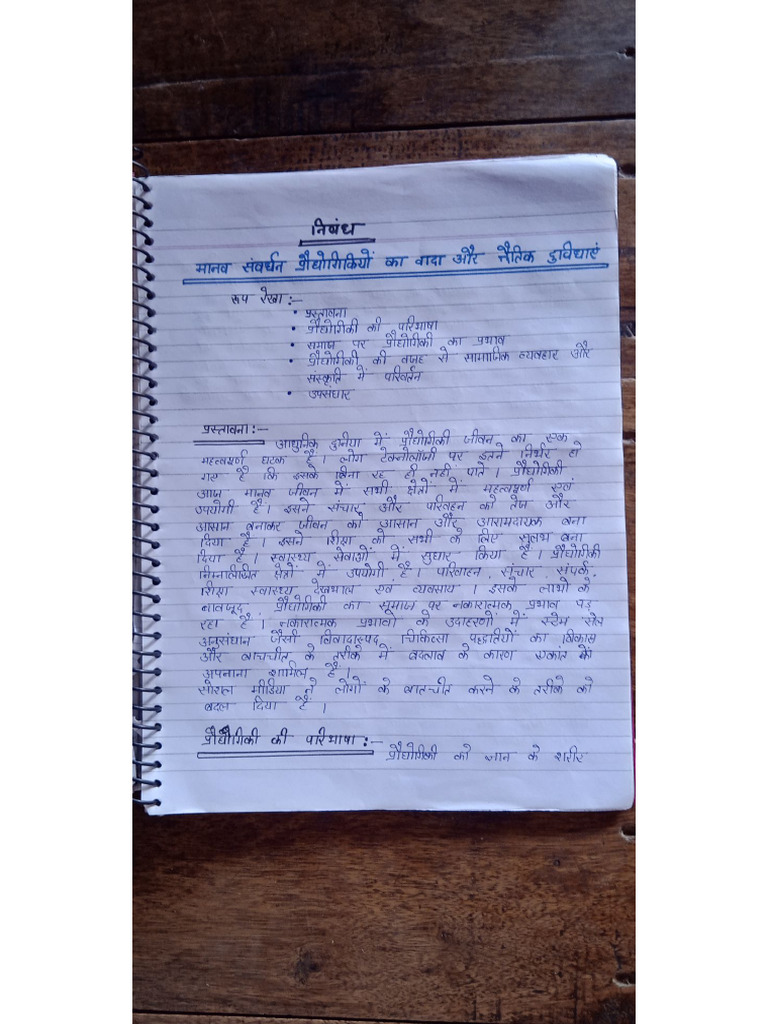 निबंध
मानव संवर्धन प्रौद्योगिकियों का वादा और नैतिक दुविधाएं
रूप रेखा :-
• प्रस्तावना
• प्रौद्योगिकी की परिभाषा
• समाज पर प्रौद्योगिकी का प्रभाव
• प्रौद्योगिकी की वजह से सामाजिक व्यवहार और
संस्कृति में परिवर्तन
• उपसंघार
प्रस्तावना :-
आधुनिक दुनिया में प्रौद्योगिकी जीवन का एक
महत्वपूर्ण घटक है। लोग टेक्नोलॉजी पर इतने निर्भर हो
गए है कि इसके बिना रह ही नहीं पाते। प्रौद्योगिकी
आज मानव जीवन में सभी क्षेत्रों में महत्वपूर्ण एवं
उपयोगी है। इसने संचार और परिवहन को तेज और
आसान बनाकर जीवन को आसान और आरामदायक बना
दिया है। इसने शिक्षा को सभी के लिए सुलभ बना
दिया है। स्वास्थ्य सेवाओं में सुधार किया है। प्रौद्योगिकी
निम्नलिखित क्षेत्रों में उपयोगी है। परिवाहन, संचार, संपर्क,
शिक्षा स्वास्थ्य देखभाल एवं व्यवसाय। इसके लाभों के
बावजूद प्रौद्योगिकी का समाज पर नकारात्मक प्रभाव पड़
रहा है। नकारात्मक प्रभावों के उदाहरणों में स्टेम सेल
अनुसंधान जैसी विवादास्पद चिकित्सा पद्धतियों का विकास
और बाचचीत के तरीके में बदलाव के कारण एकांत को
अपनाना शामिल है।
सोशल मीडिया ने लोगों के बातचीत करने के तरीके को
बदल दिया है।
प्रौद्योगिकी की परिभाषा :-
प्रौद्योगिकी को ज्ञान के शरीर